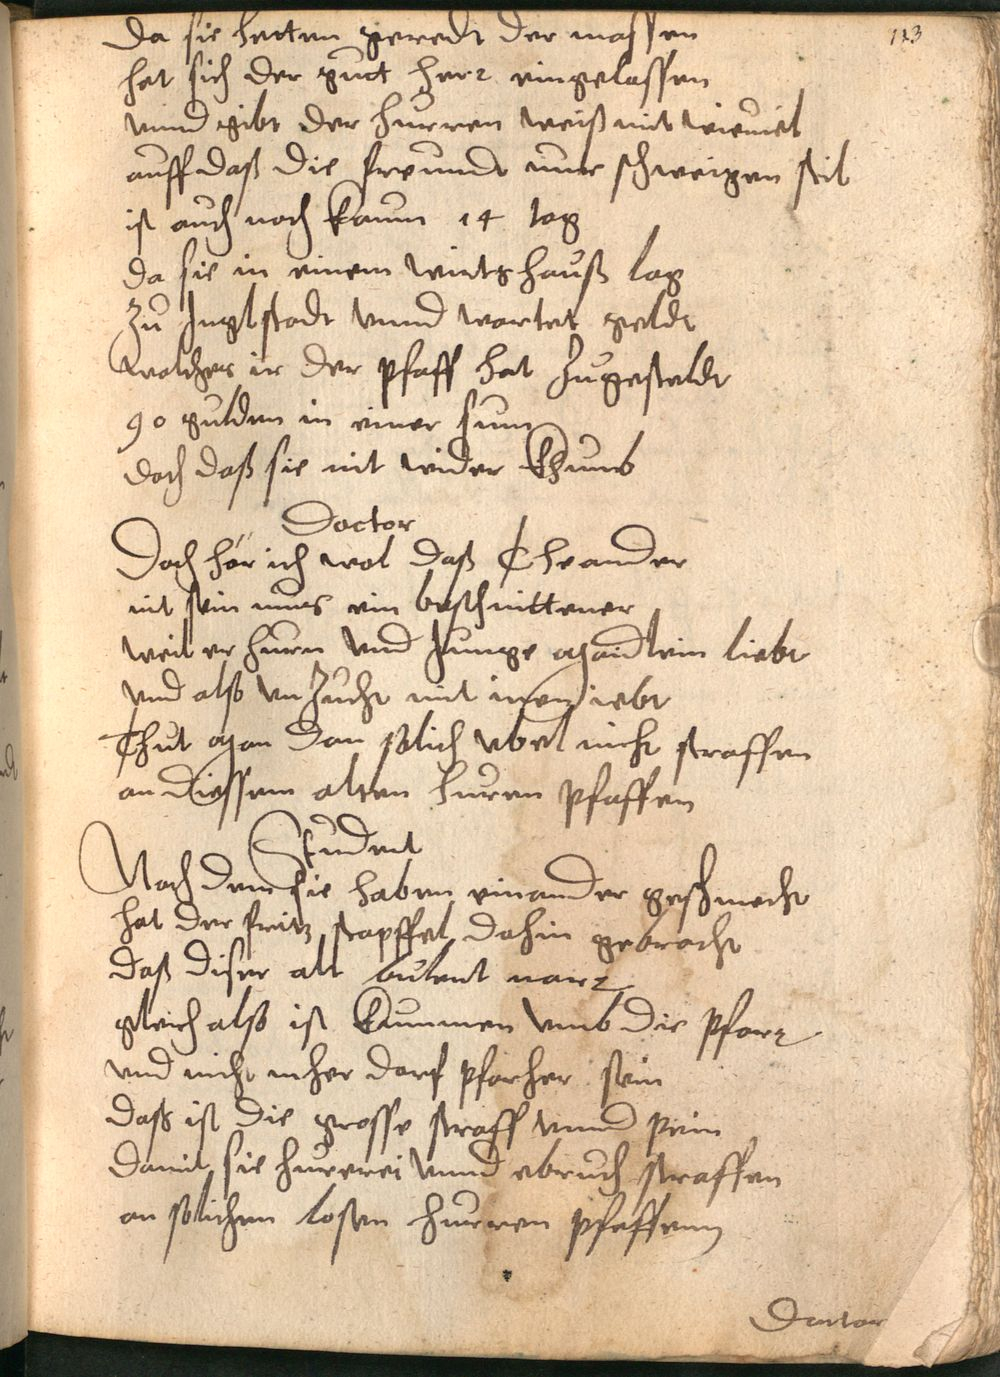 113
Da sie hetten geredt der massen
hat sich der guct herr eingelassen
vnnd gibt der hurren weiß nit wieuiel
auff daß die freundt nur schweigen stil
ist auch noch kaum 14 tag
da sie in einem wirtshauß lag
Zu Inglstadt vnnd wartet geldt
welches ir der pfaff hat zugesteldt
90 gulden in einer sum
doch daß sie nit wider khumb
Doctor
Doch hör ich wol daß
nit sein mues ein beschnittener
weil er hurn vnd Junge maidlein liebt
vnd alß vnzucht mit inen iebt
Thut man dan solich vbel nicht straffen
an diessem alten huren pfaffen
Student
Nach dem sie haben einander geschmecht
hat der fritz stapffel dahin gebracht
daß diser alt bulent narr
gleich alß ist kummen vmb die pfarr
vnd nicht mher darf pfarher sein
daß ist die grosse straff vnnd pein
damit sie hurerei vnnd ebruch straffen
an solichen losen hurren pfaffenn
Doctor